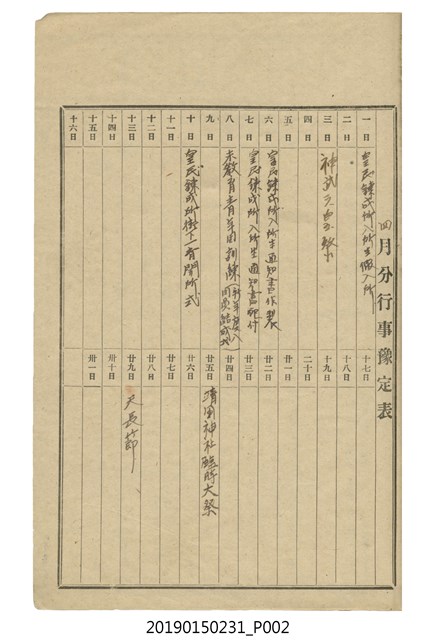 四月分行事豫定表
一日 皇民鍊成所入所生仮入所
二日
三日 神武天皇祭
四日
五日
六日 皇民鍊成所入所生通知書作製
七日 皇民鍊成所入所生通知書配付
八日 未教育青年團訓練
九日
十日 皇民鍊成所街下一有開所式
十一日
十二日
十三日
十四日
十五日
十六日
十七日
十八日
十九日
二十日
廿一日
廿二日
廿三日
廿四日
廿五日 靖國神社臨時大祭
廿六日
廿七日
廿八日
廿九日 天長節
卅十日
卅一日
20190150231_P002